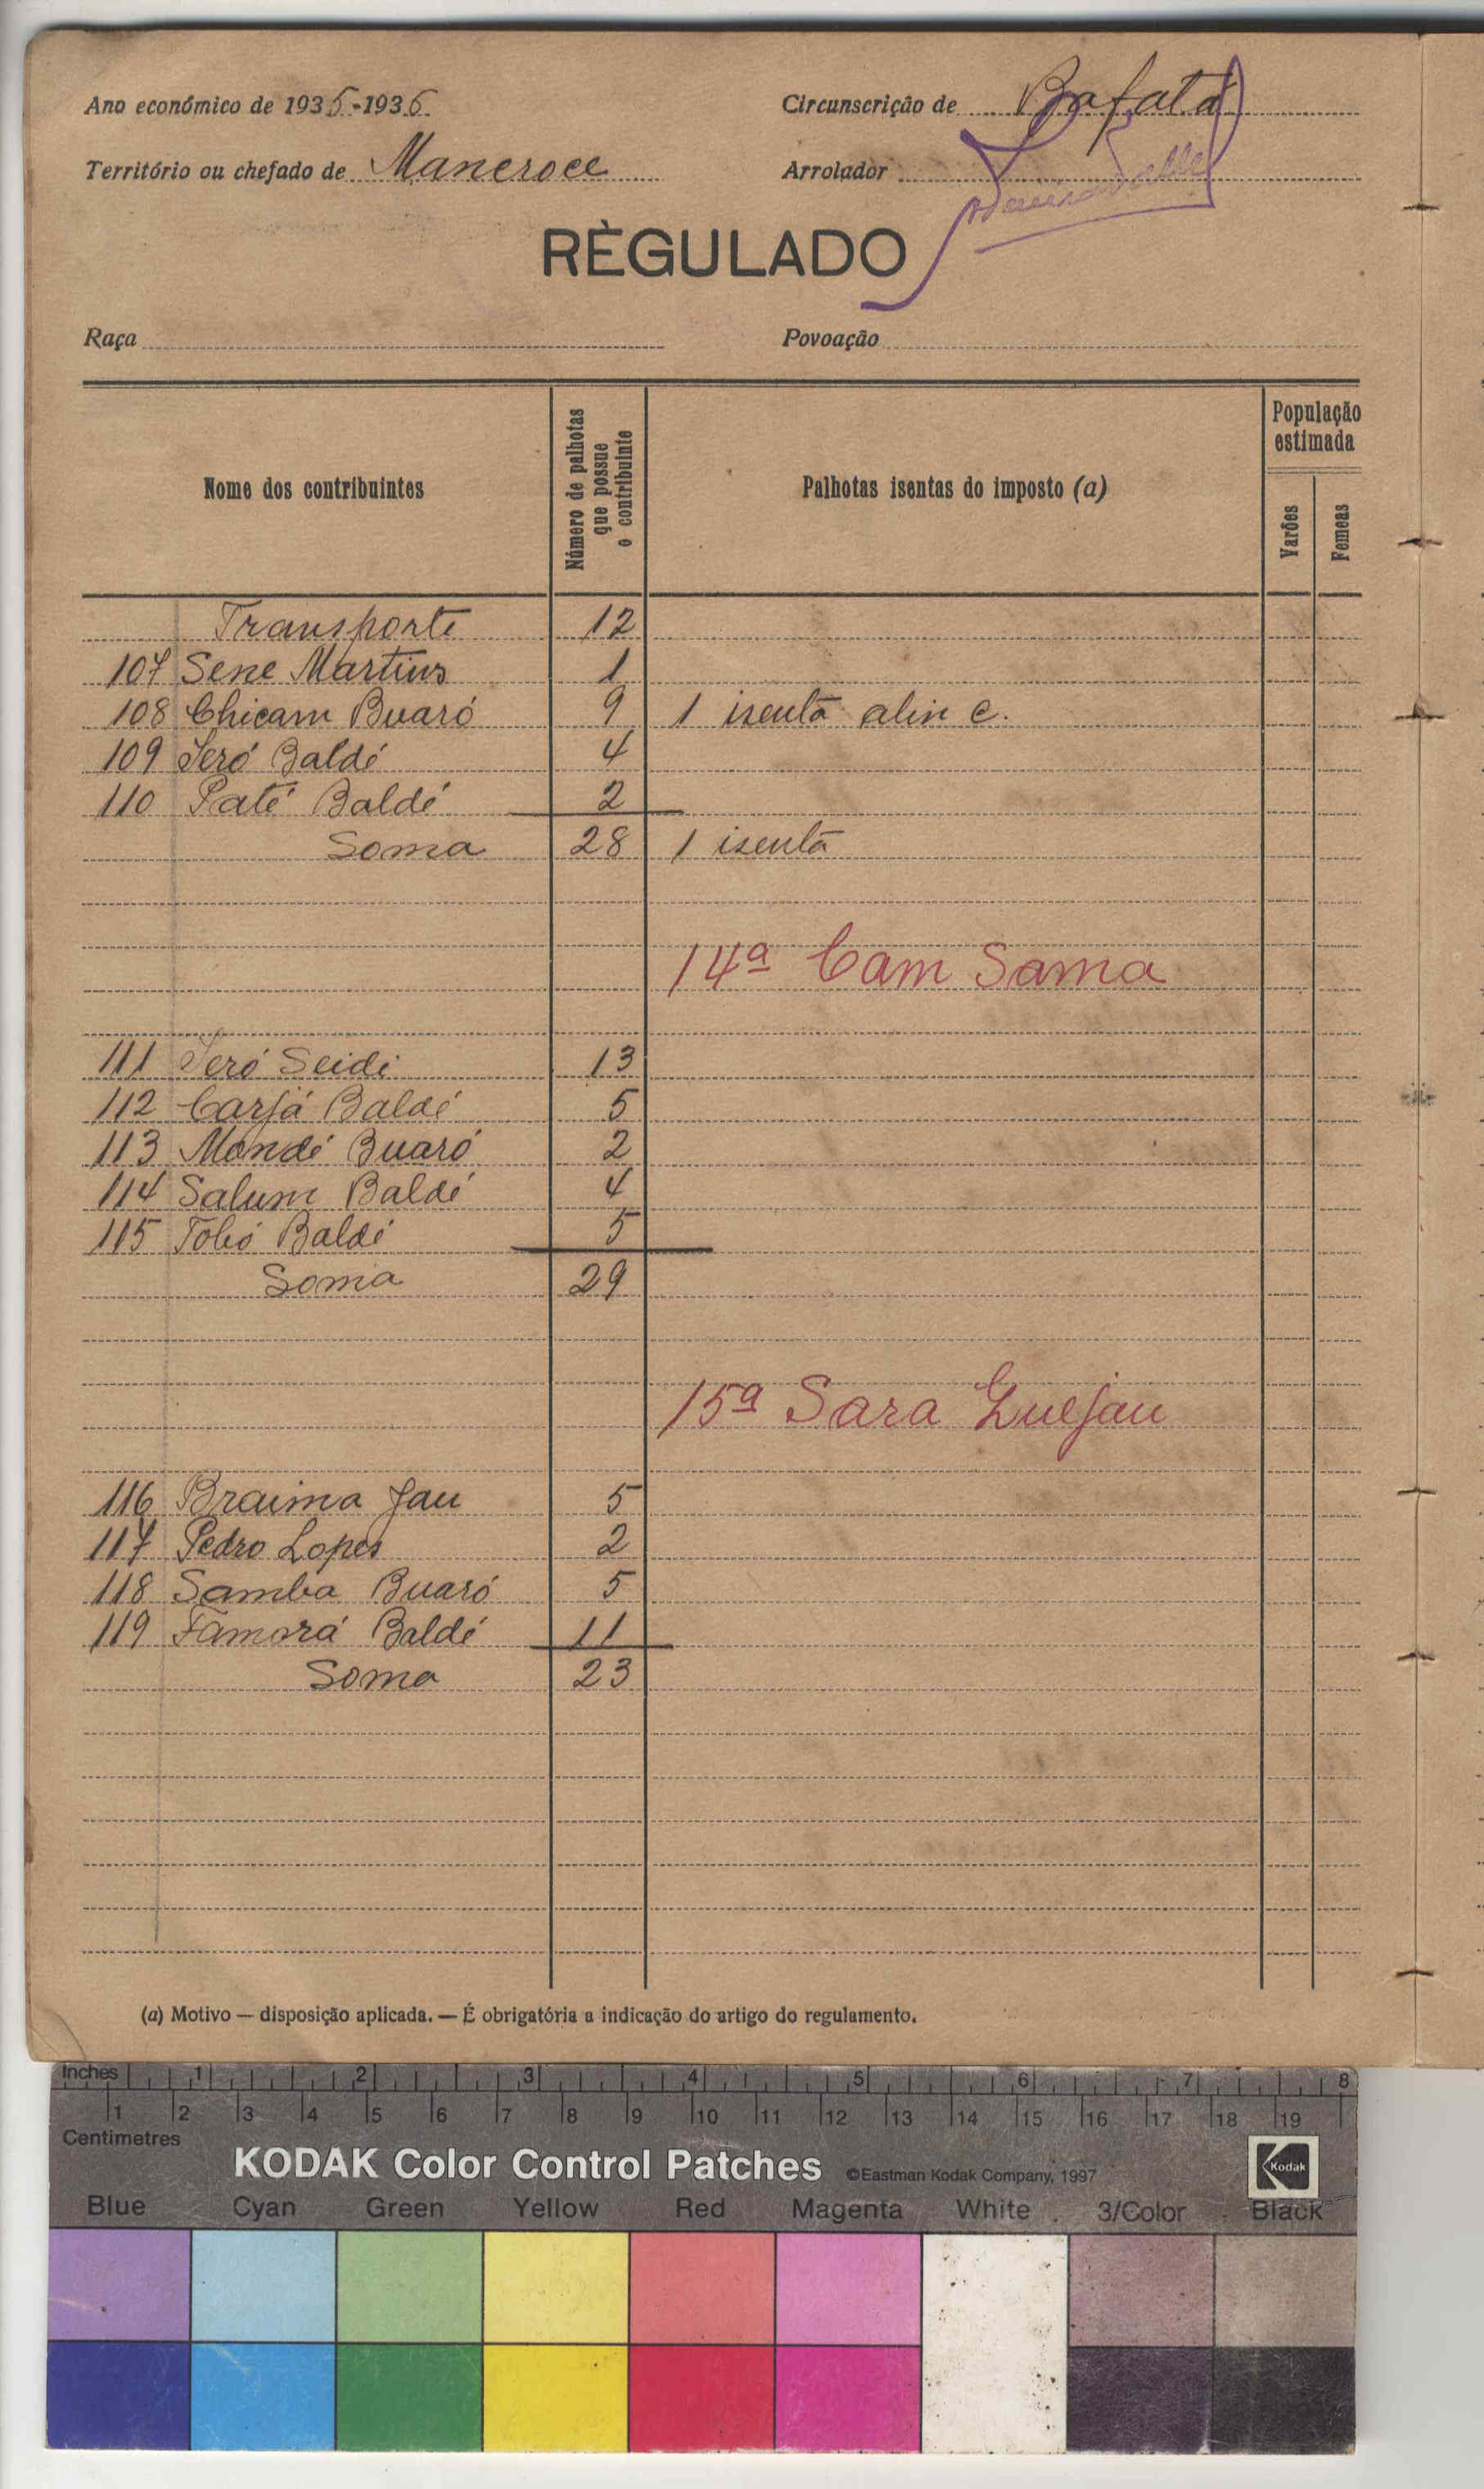 Ano económico de 1935-1936
Circunscrição de Bafatá
Território ou chefado de Mancroce
Arrolador
RÈGULADO
Raça
Povoação
Nome dos contribuintes
Número de palhotas que possue o contribuinte
Palhotas isentas do imposto (a)
População estimada
Varões
Femeas
Transporte 12
107 Sene Martins 1
108 Chicam Buaró 9 1 isenta alin c.
109 Seró Baldé 4
110 Paté Baldé 2
Soma 28 1 isenta
14ª Cam Sama
111 Seró Seidi 13
112 Carjá Baldé 5
113 Mondé Buaró 2
114 Salum Baldé 4
115 Tobó Baldé 5
Soma 29
15ª Sara Guejau
116 Braima Jau 5
117 Pedro Lopes 2
118 Samba Buaró 5
119 Famorá Baldé 11
Soma 23
(a) Motivo — disposição aplicada. — É obrigatória a indicação do artigo do regulamento.
Inches 1 2 3 4 5 6 7 8
1 2 3 4 5 6 7 8 9 10 11 12 13 14 15 16 17 18 19
Centimetres
KODAK Color Control Patches ©Eastman Kodak Company, 1997 Kodak
Blue Cyan Green Yellow Red Magenta White 3/Color Black